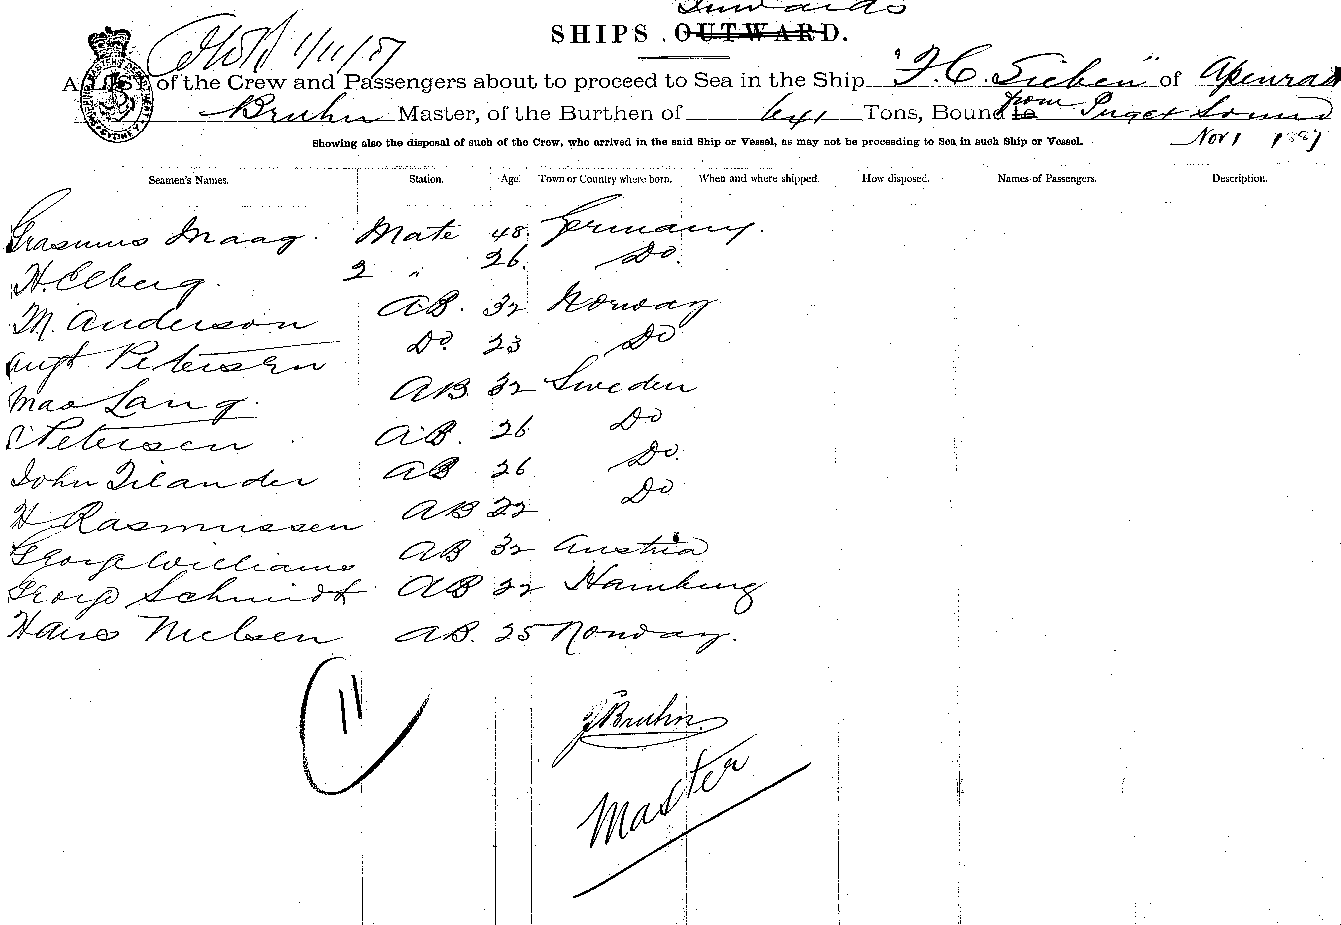 Inwards
SHIPS OUTWARD.
1/11/87
A LIST of the Crew and Passengers about to proceed to Sea in the Ship "F. C. Sieben" of Apenrad
Bruhn Master, of the Burthen of 641 Tons, Bound to from Puget Sound
Showing also the disposal of such of the Crew, who arrived in the said Ship or Vessel, as may not be proceeding to Sea in such Ship or Vessel. Nov 1 1887
Seamen's Names. Station. Age. Town or Country where born. When and where shipped. How disposed. Names of Passengers. Description.
Grasmus Maag. Mate 48 Germany.
H. Elberg. 2 " 26. Do.
M. Anderson AB. 32 Norway
Augt Petersen Do. 23 Do
Mas Lang. AB. 32 Sweden
Petersen AB. 26 Do
John Tilander AB 26 Do.
H Rasmussen AB 22 Do
George Williams AB 32 Austria
George Schmidt AB 22 Hamburg
Hans Nielsen AB. 25 Norway.
11
J Bruhn
Master